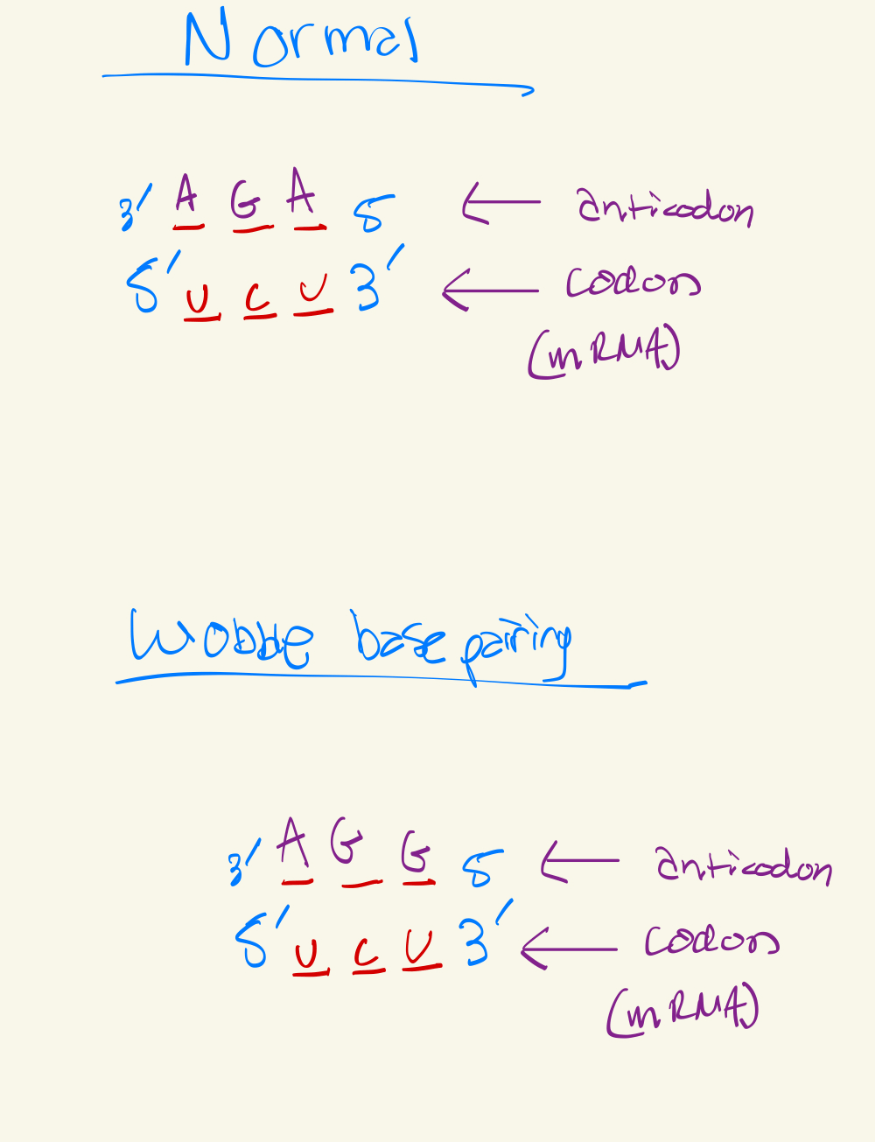 Normal
3' A G A 5 ← anticodon
5' U C U 3' ← codon
(mRNA)
Wobble base pairing
3' A G G 5 ← anticodon
5' U C U 3' ← codon
(mRNA)